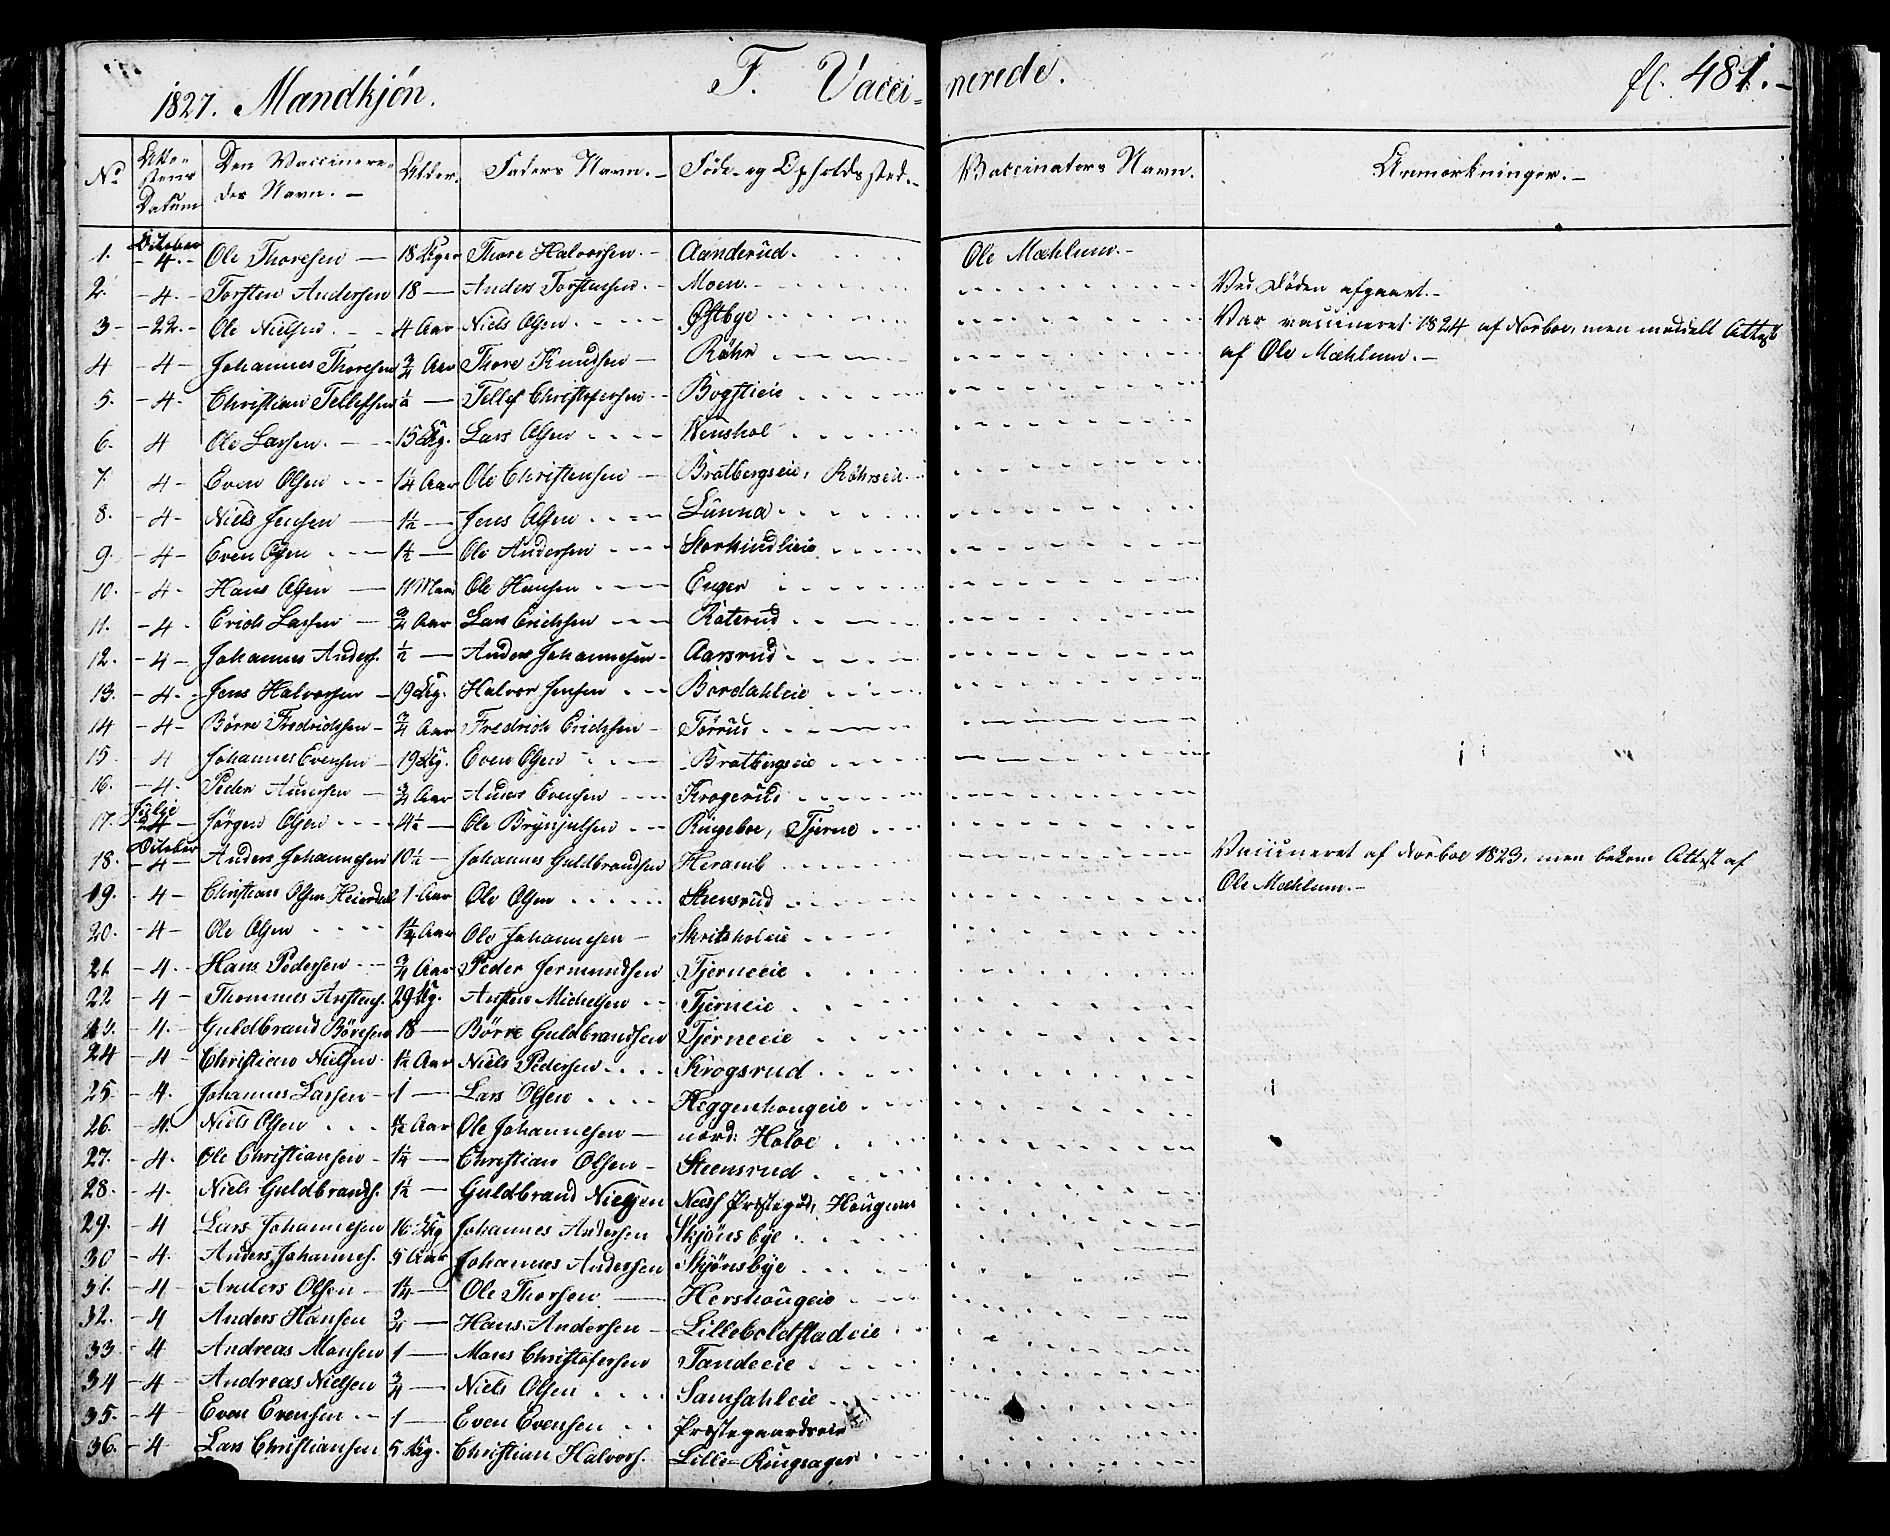 1827. Mandkjøn. F. Vacci- nerede. fl. 481.-
No Atte- stens Datum Den Vaccinere- des Navn. - Alder. Faders Navn. - Føde- og Opholdssted. - Vaccinators Navn. Anmærkninger. -
1. October 4. Ole Thoresen 18 Uger Thore Halvorsen. - Aanderud. Ole Mæhlum. -
2. 4. Torsten Andersen 18 Anders Torstensen. Moen. Ved Døden afgaaet. -
3 22. Ole Nielsen. 4 Aar Niels Olsen Østbye Var vaccineret 1824 af Norboe, men meddelt Attest
af Ole Mæhlum. -
4 4. Johannes Thoresen 3/4 Aar Thore Knudsen Røhr
5. 4. Christian Tellefsen Tellef Christofersen Bogstieie
6. 4 Ole Larsen. 15 Ug. Lars Olsen
7. 4 Even Olsen 1 1/4 Aar Ole Christensen Bratbergseie, Røhrseie
8. 4 Niels Jensen 1 1/2 Jens Olsen Lunna
9. 4 Even Olsen 1 1/2 Ole Andersen
10. 4 Hans Olsen 11 Maan Ole Hansen Enger
11. 4 Erich Larsen 3/4 Aar Lars Erichsen Raterud
12. 4 Johannes Anders. 1/2 Anders Johannesen Aarsrud
13. 4. Jens Halvorsen 19 Ug. Halvor Jensen Bordahleie
14 4. Børre Fredrichsen 3/4 Aar Fredrich Erichsen Tørrud
15 4 Johannes Evensen 19 Ug. Even Olsen Bratbergseie
16. 4. Peder Andersen 3/4 Aar Evensen Krogsrud
17. Julie 24 Jørgen Olsen 4 1/2 Ole Brynjulsen Ringeboe, Tjerne
18. October 4 Anders Johannesen 10 1/2 Johannes Guldbrandsen Heramb Vaccineret af Norboe 1823, men bekom Attest af
Ole Mæhlum. -
19. 4 Christian Olsen Heierdal 1 Aar Ole Olsen Steensrud
20. 4 Ole Olsen Aar Ole Johannesen Skritsholeie
21 4. Hans Pedersen 3/4 Aar Peder Jermundsen Tjerneeie
22 4 Thommes Anstens. 29 Ug. Ansten Michelsen Tjerneie
23. 4. Guldbrand Børresen 18 Børre Guldbrandsen Tjerneeie
24 4 Christian Nielsen 1 1/4 Aar Niels Pedersen Krogsrud
25. 4. Johannes Larsen 1 Lars Olsen Heggenhougeie
26. 4. Niels Olsen Aar Ole Johannesen nord: Holoe
27. 4. Ole Christiansen 1 1/4 Christian Olsen Steensrud
28. 4. Niels Guldbrands. 1 1/2 Guldbrand Nielsen Næs Præstegjd, Hougnes
29. 4 Lars Johannesen 16 Ug Johannes Andersen Skjønsbye
30 4. Anders Johannes. 5 Aar Johannes Andersen Skjønsbye
31. 4 Anders Olsen 1 1/4 Ole Thorsen Hershougeie
32. 4 Anders Hansen 3/4 Hans Andersen Lilleboldstadeie
33 4 Andreas Monsen 1 Mons Christofersen Tandeeie
34 4 Andreas Nielsen 3/4 Niels Olsen Samsahleie
35. 4 Even Evensen 1 Even Evensen Præstegaardseie
36. 4 Lars Christiansen 5 Ug. Christian Halvors. Lille-Ringsager